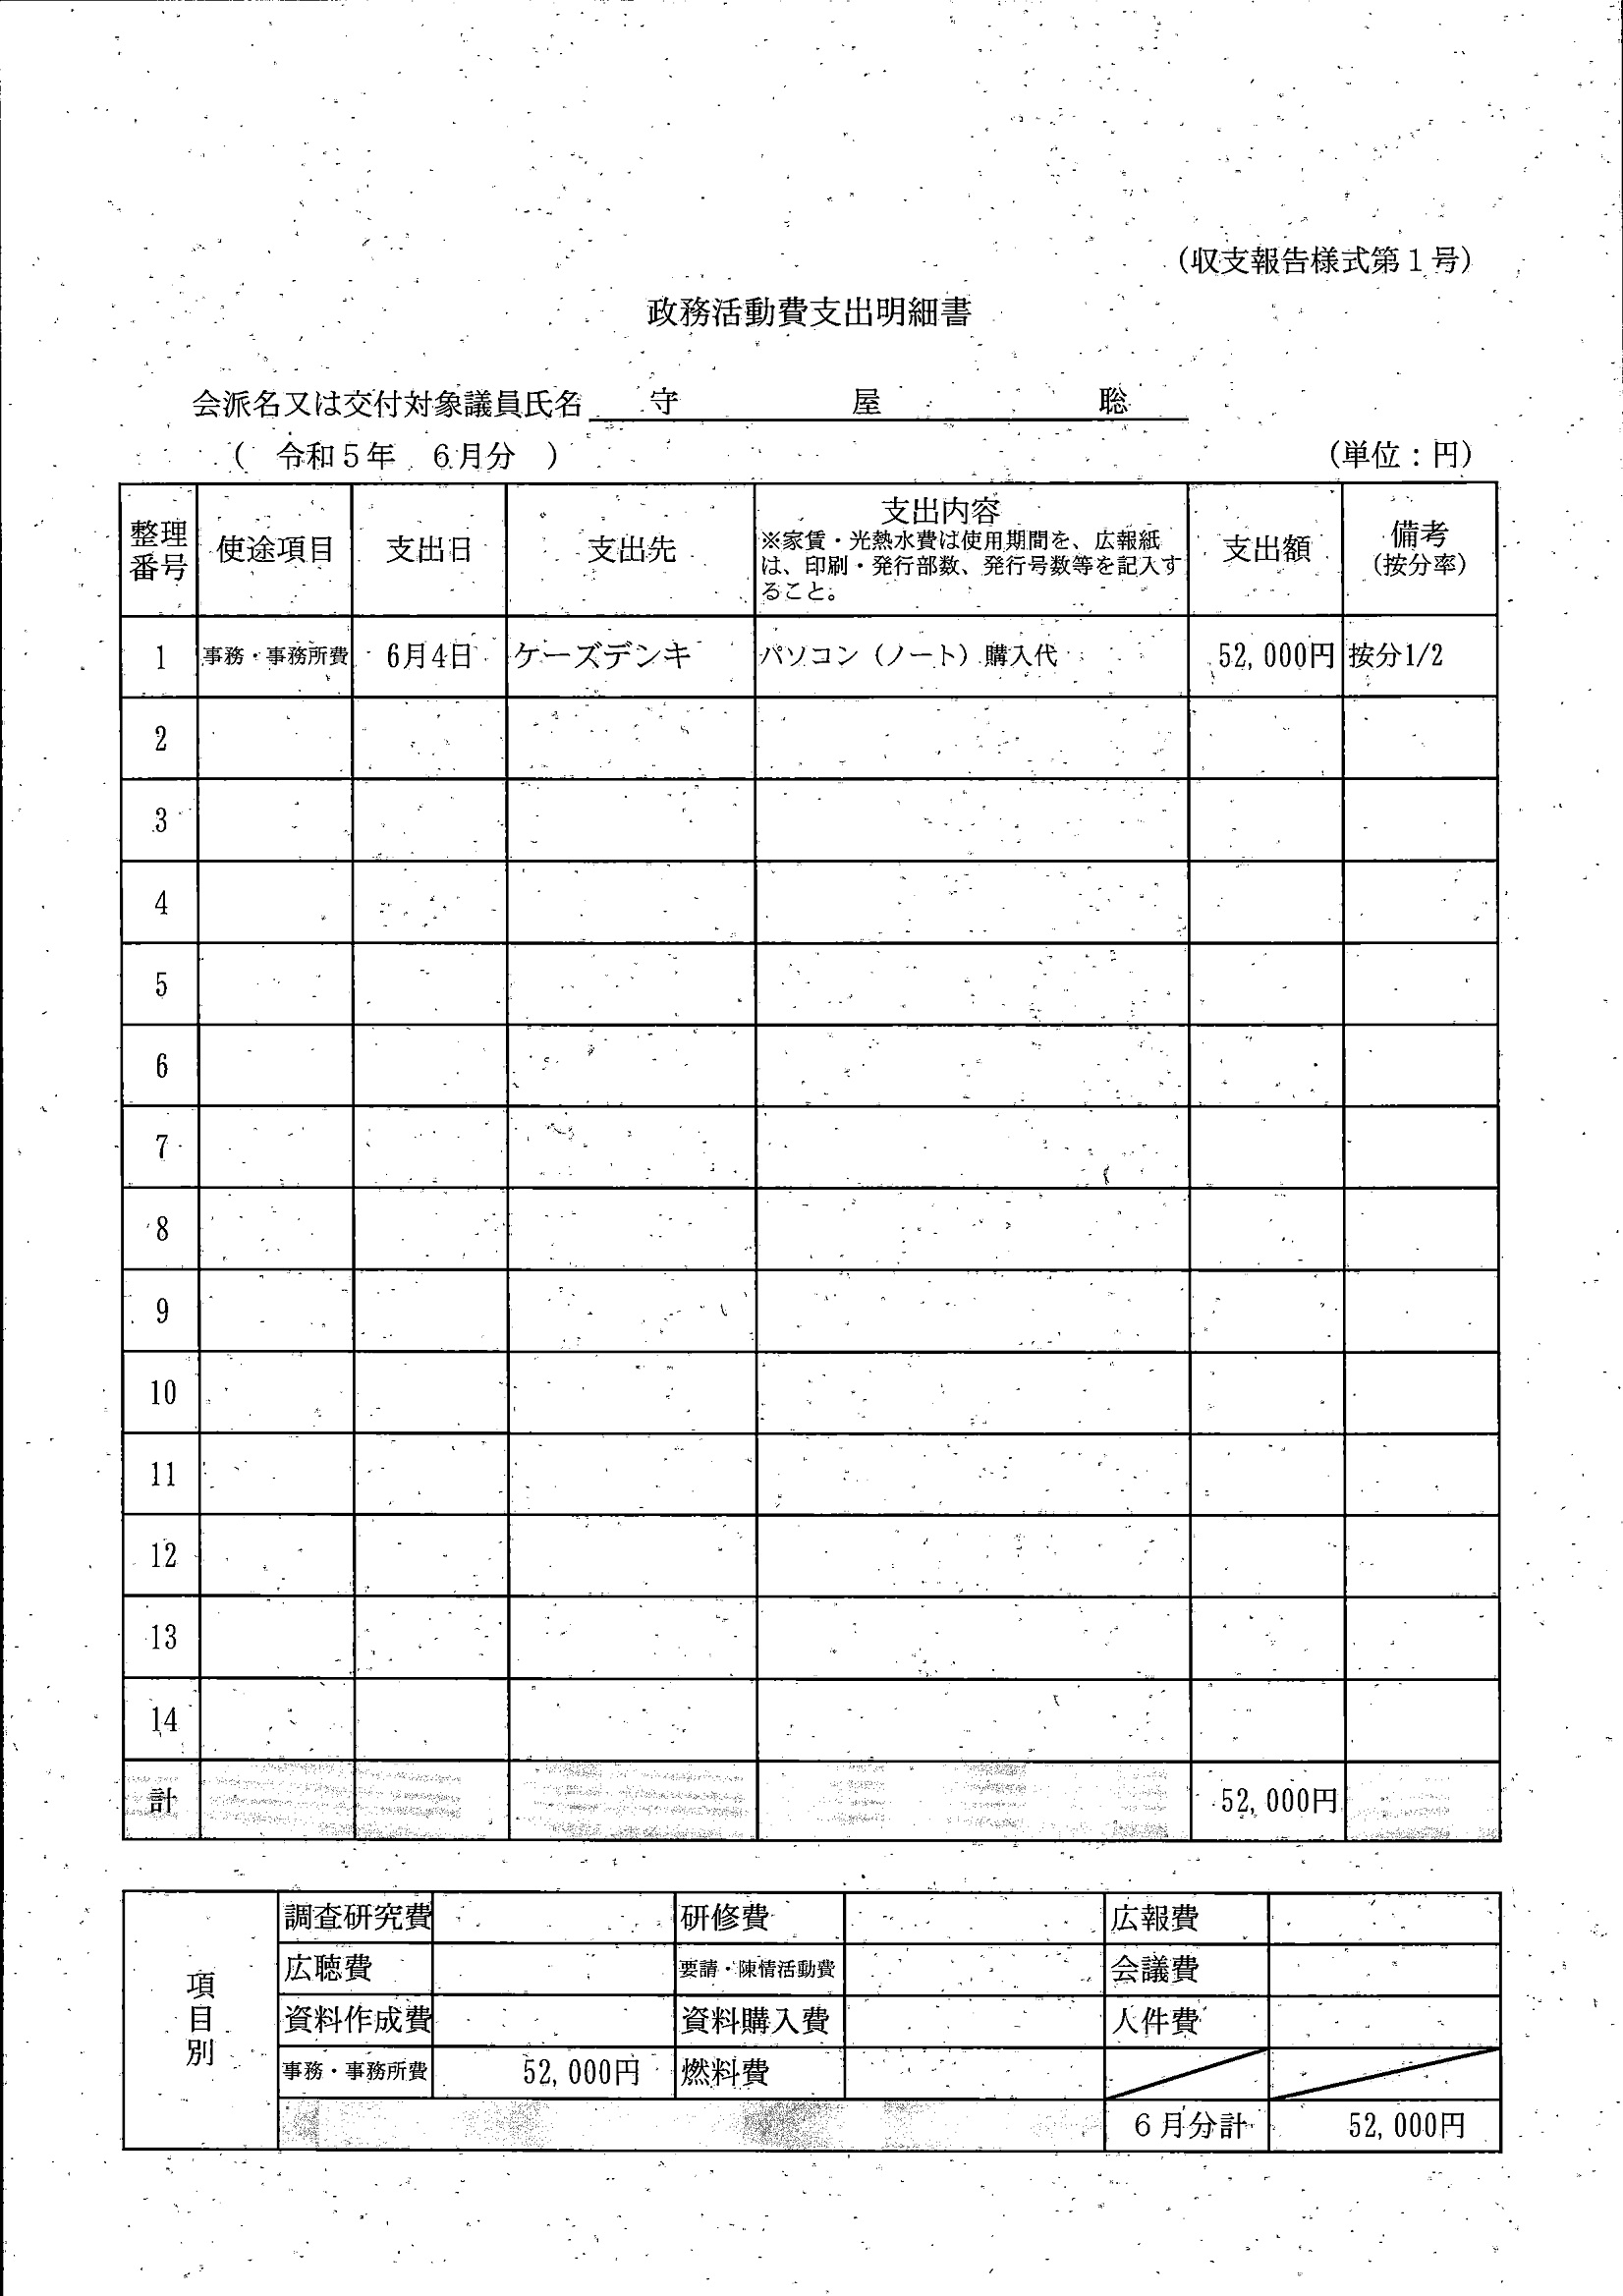 （収支報告様式第１号）
政務活動費支出明細書
会派名又は交付対象議員氏名 守 屋 聡
（ 令和５年 ６月分 ）
（単位：円）
整理番号 使途項目 支出日 支出先 支出内容 支出額 備考（按分率）
※家賃・光熱水費は使用期間を、広報紙
は、印刷・発行部数、発行号数等を記入す
ること。
1 事務・事務所費 6月4日 ケーズデンキ パソコン（ノート）購入代 52,000円 按分1/2
2
3
4
5
6
7
8
9
10
11
12
13
14
計 52,000円
項目別
調査研究費 研修費 広報費
広聴費 要請・陳情活動費 会議費
資料作成費 資料購入費 人件費
事務・事務所費 52,000円 燃料費
６月分計 52,000円